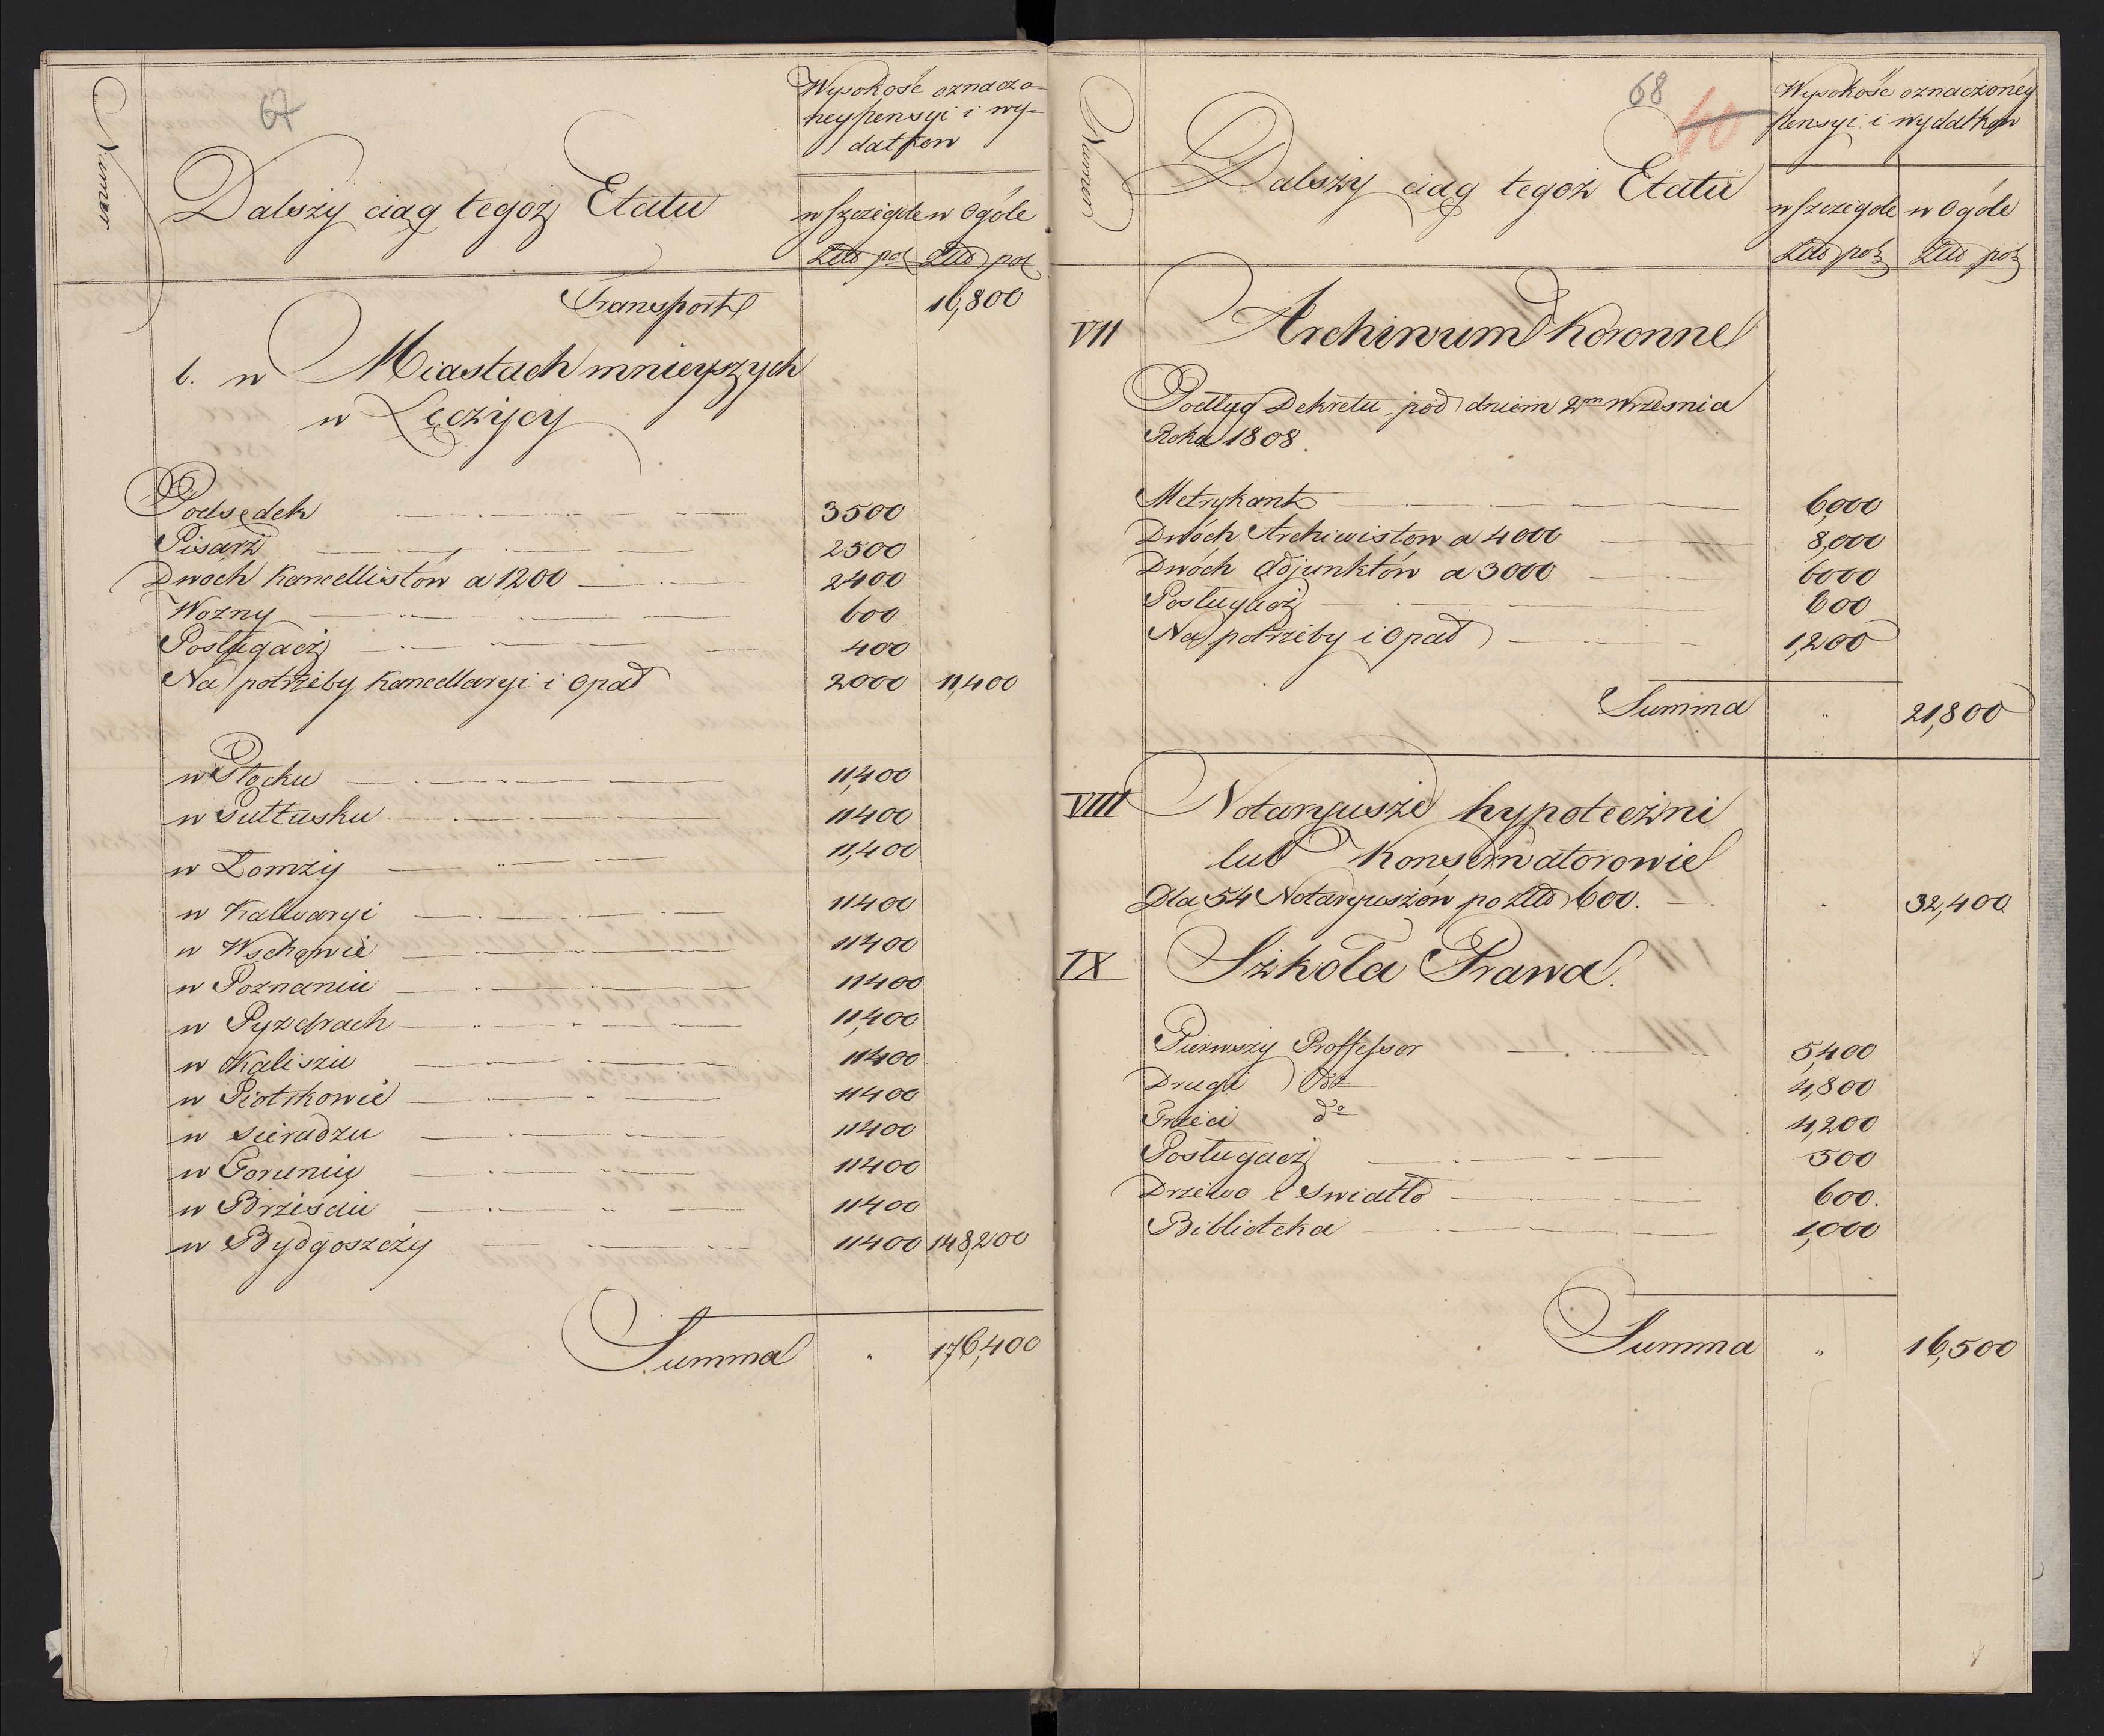 67
Numer
Dalszy ciąg tegoż Etatu
Wysokość oznaczo-
ney pensyi i wy-
datkow
w szczegule w Ogóle
Złłt pol Złłt pol
Transport 16,800
b. w Miastach mnieyszych
w Łęczycy
Podsędek 3500
Pisarz 2500
Dwoch Kancellistów a 1200 2400
Wozny 600
Posługacz 400
Na potrzeby Kancellaryi i Opał 2000 11,400
w Płocku 11,400
w Pułtusku 11400
w Łomży 11,400
w Kalwaryi 11400
w Wschowie 11400
w Poznaniu 11400
w Pyzdrach 11,400
w Kaliszu 11400
w Piotrkowie 11400
w Sieradzu 11400
w Toruniu 11400
w Brześciu 11400
w Bydgoszczy 11400 148,200
Summa " 176,400
68 40
Numer
Dalszy ciąg tegoż Etatu
Wysokość oznaczonéy
pensyi i wydatkow
w szczegole w Ogóle
Złłt pol Złłt pol
VII Archiwum Koronne
Podług Dekretu pod dniem 2m Wrzesnia
Roku 1808.
Metrykant 6,000
Dwóch Archiwistow a 4000 8,000
Dwóch Adjunktów a 3000 6000
Posługacz 600
Na potrzeby i Opał 1,200
Summa " 21,800
VIII Notaryusze hypoteczni
lub Konserwatorowie
Dla 54 Notaryuszów po Złłt 600. " 32,400
IX Szkoła Prawa.
Pierwszy Professor 5,400
Drugi do 4,800
Trzeci do 4,200
Posługacz 500
Drzewo i Swiatło 600.
Biblioteka 1,000
Summa " 16,500